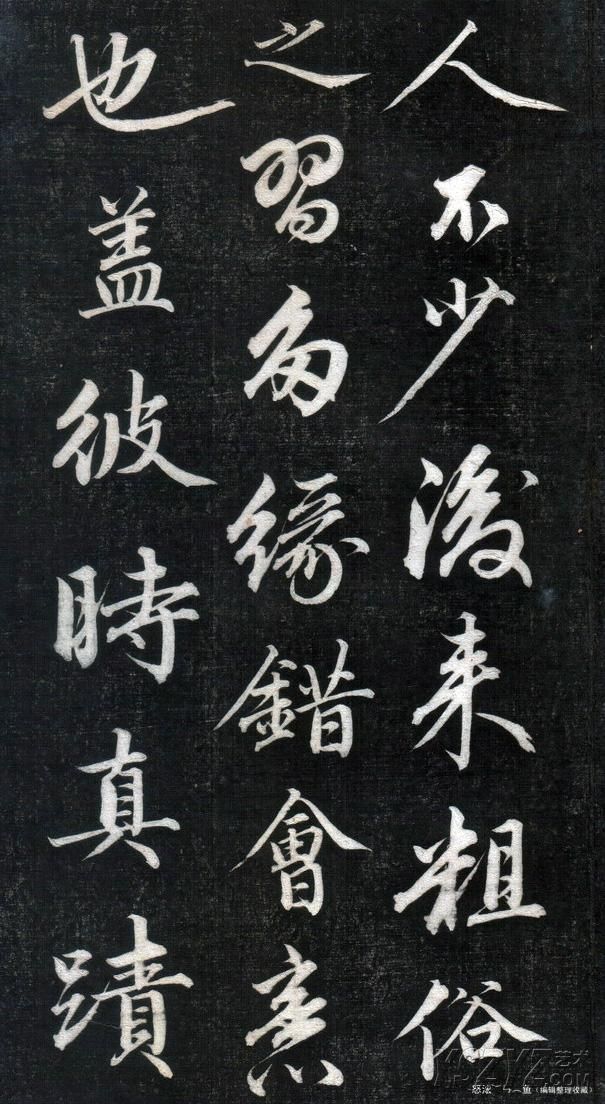 人不少後来粗俗
之習多緣錯會意
也盖彼時真蹟
（编辑整理收藏）